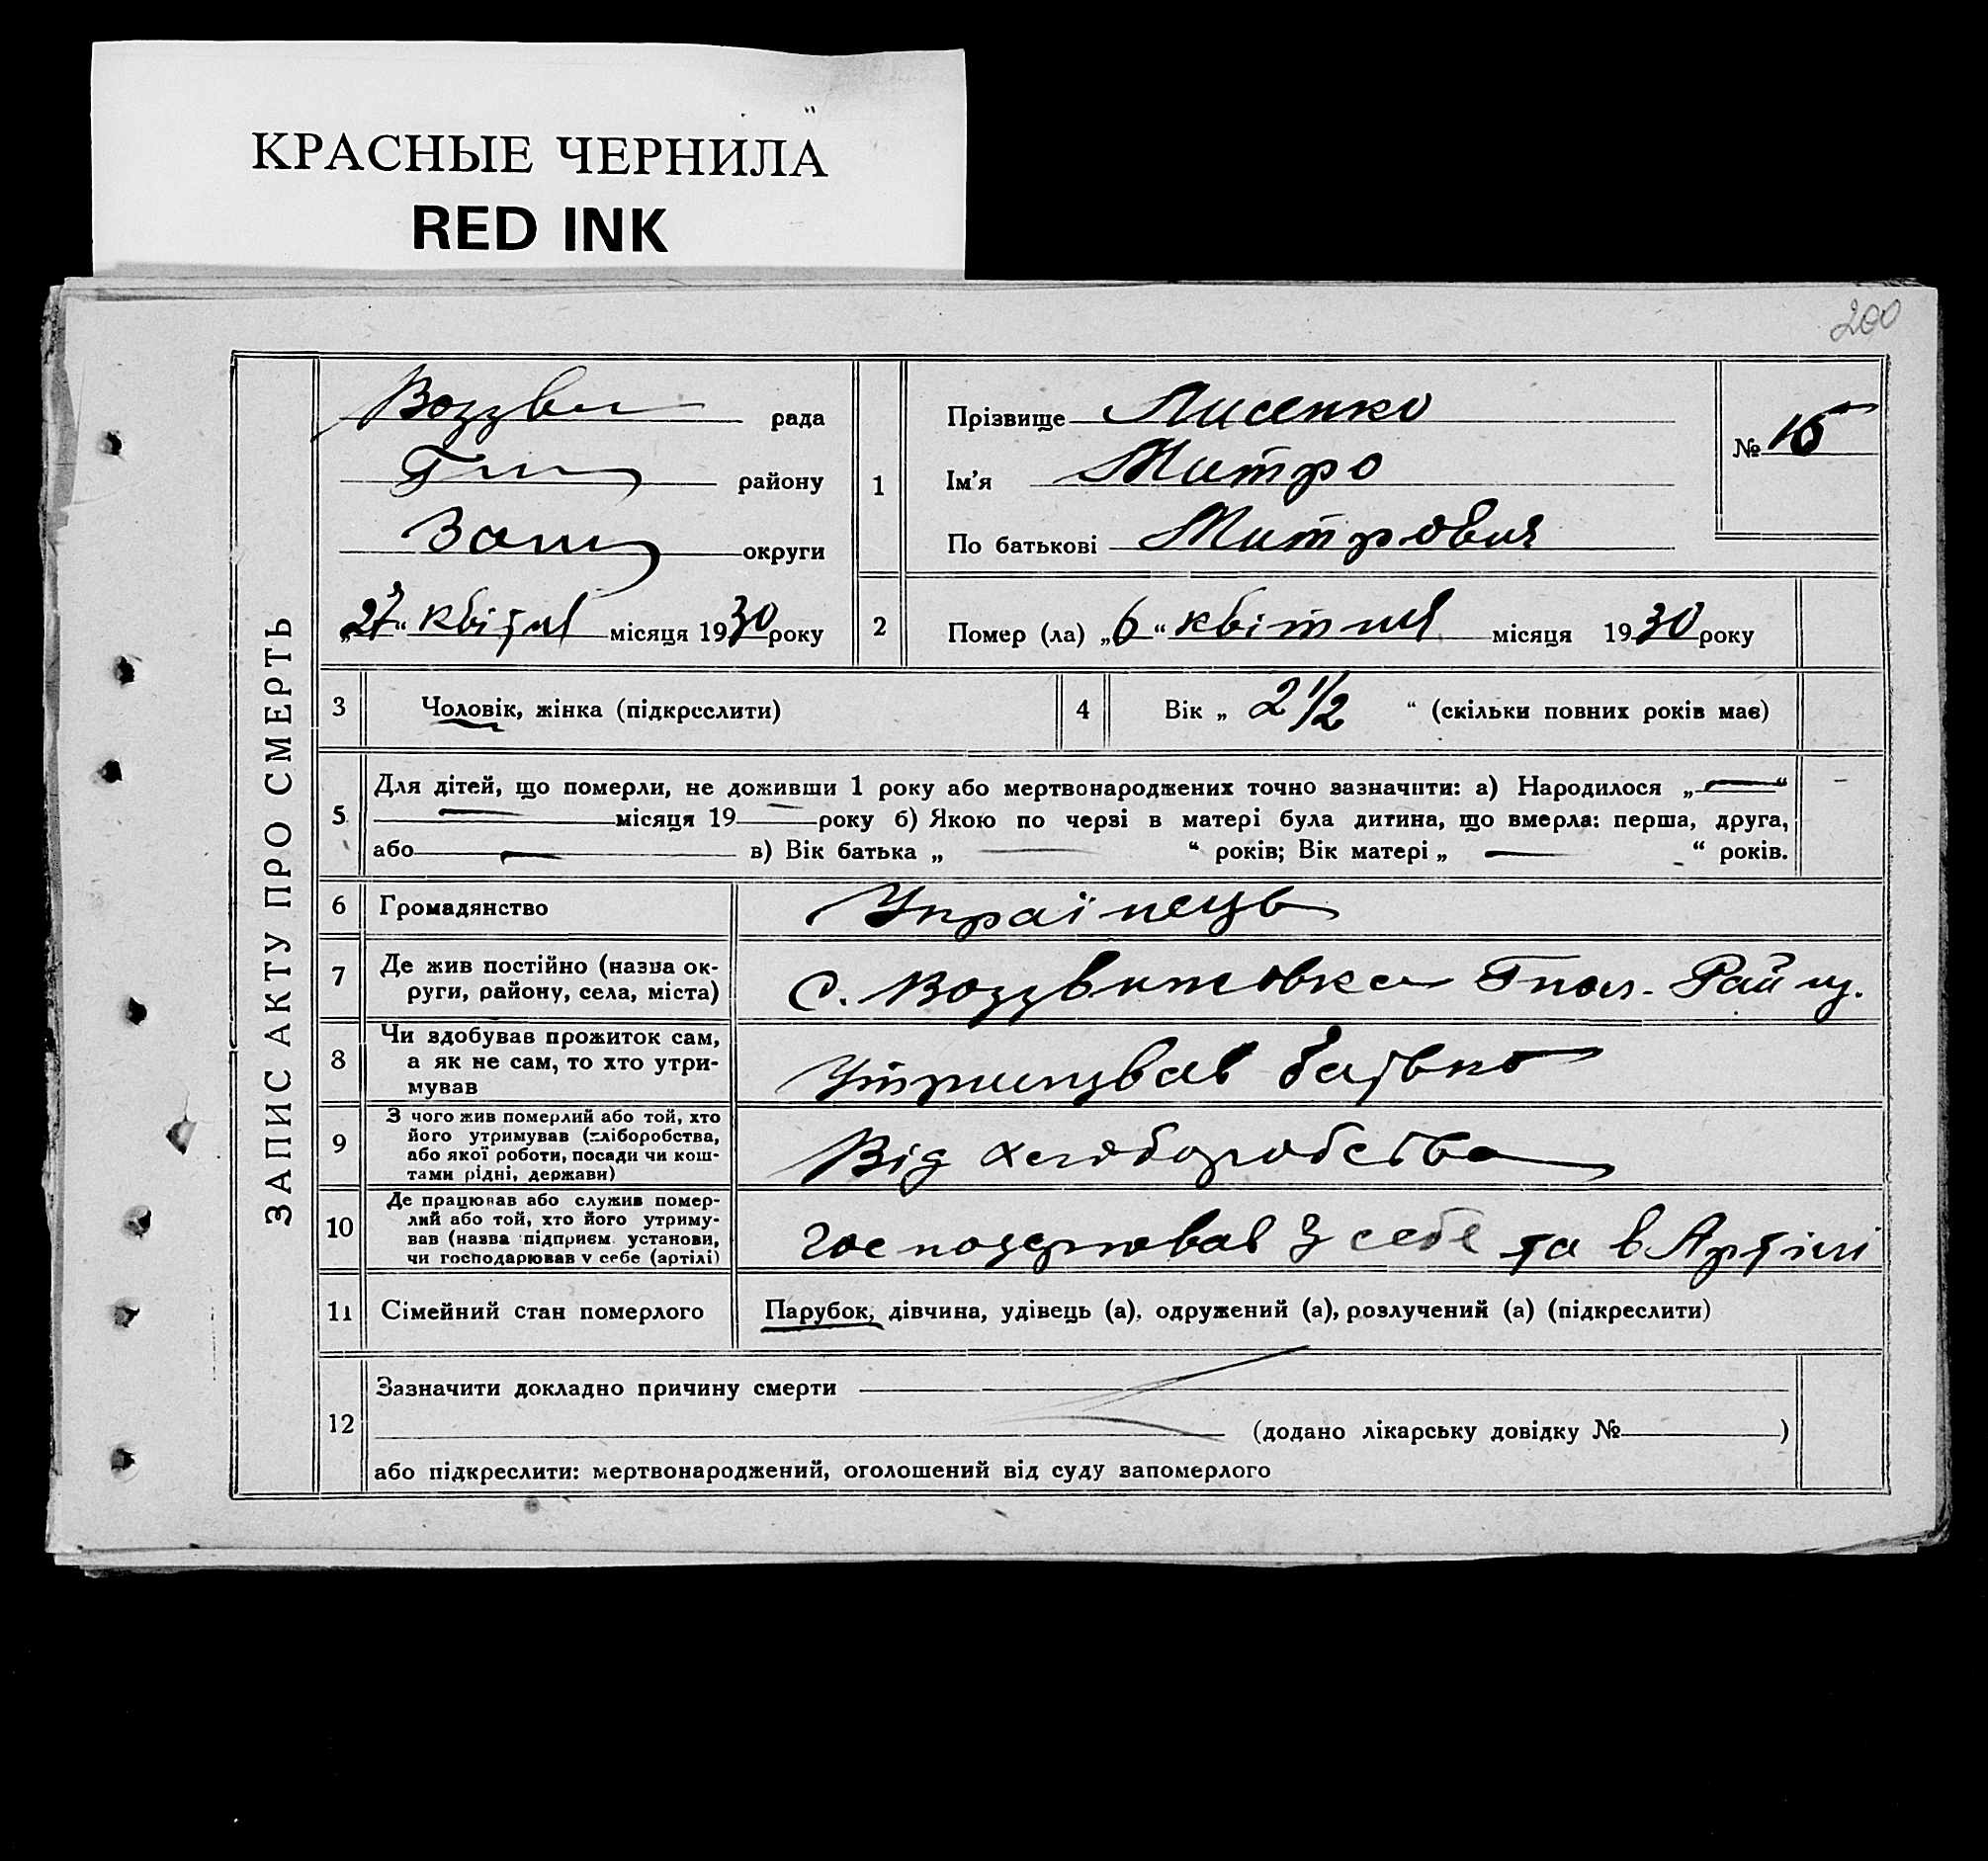 КРАСНЫЕ ЧЕРНИЛА
RED INK
200
ЗАПИС АКТУ ПРО СМЕРТЬ
Воздви рада
району
Запо округи
„27“ квітня місяця 1930 року
1
Прізвище Лисенко
Ім'я Митро
По батькові Митрович
№ 15
2
Помер (ла) „6“ квітня місяця 1930 року
3
Чоловік, жінка (підкреслити)
4
Вік „ 2 1/2 “ (скільки повних років має)
5
Для дітей, що померли, не доживши 1 року або мертвонароджених точно зазначити: а) Народилося „—“
— місяця 19 — року б) Якою по черзі в матері була дитина, що вмерла: перша, друга,
або — в) Вік батька „ — “ років; Вік матері „ — “ років.
6
Громадянство
Українець
7
Де жив постійно (назва ок-
руги, району, села, міста)
с. Воздвижовка Гнол. Району.
8
Чи здобував прожиток сам,
а як не сам, то хто утри-
мував
Утримував батько
9
З чого жив померлий або той, хто
його утримував (хліборобства,
або якої роботи, посади чи кош-
тами рідні, держави)
Від хліборобства
10
Де працював або служив помер-
лий або той, хто його утриму-
вав (назва підприєм. установи,
чи господарював у себе (артілі)
Господарював у себе та в Артілі
11
Сімейний стан померлого
Парубок, дівчина, удівець (а), одружений (а), розлучений (а) (підкреслити)
12
Зазначити докладно причину смерти
(додано лікарську довідку № )
або підкреслити: мертвонароджений, оголошений від суду запомерлого